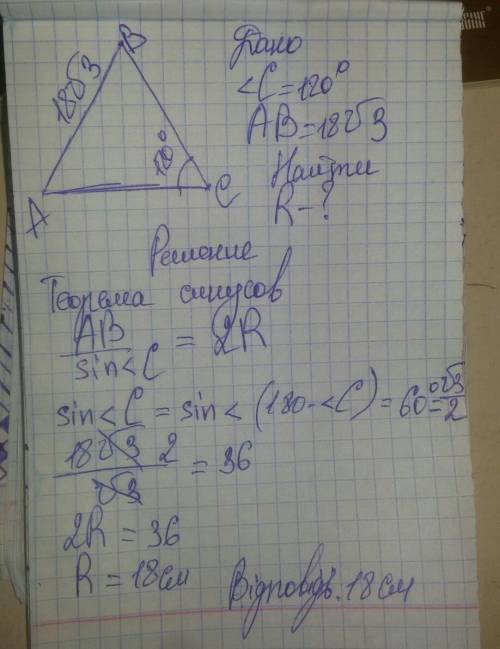 B
18√3
120°
A
C
Дано
<C=120°
AB=18√3
Найти
R-?
Решение
Теорема синусов
AB/sin<C = 2R
sin<C = sin<(180-<C) = 60° = √3/2
18√3 2/√3 = 36
2R = 36
R = 18см
Відповідь. 18 см